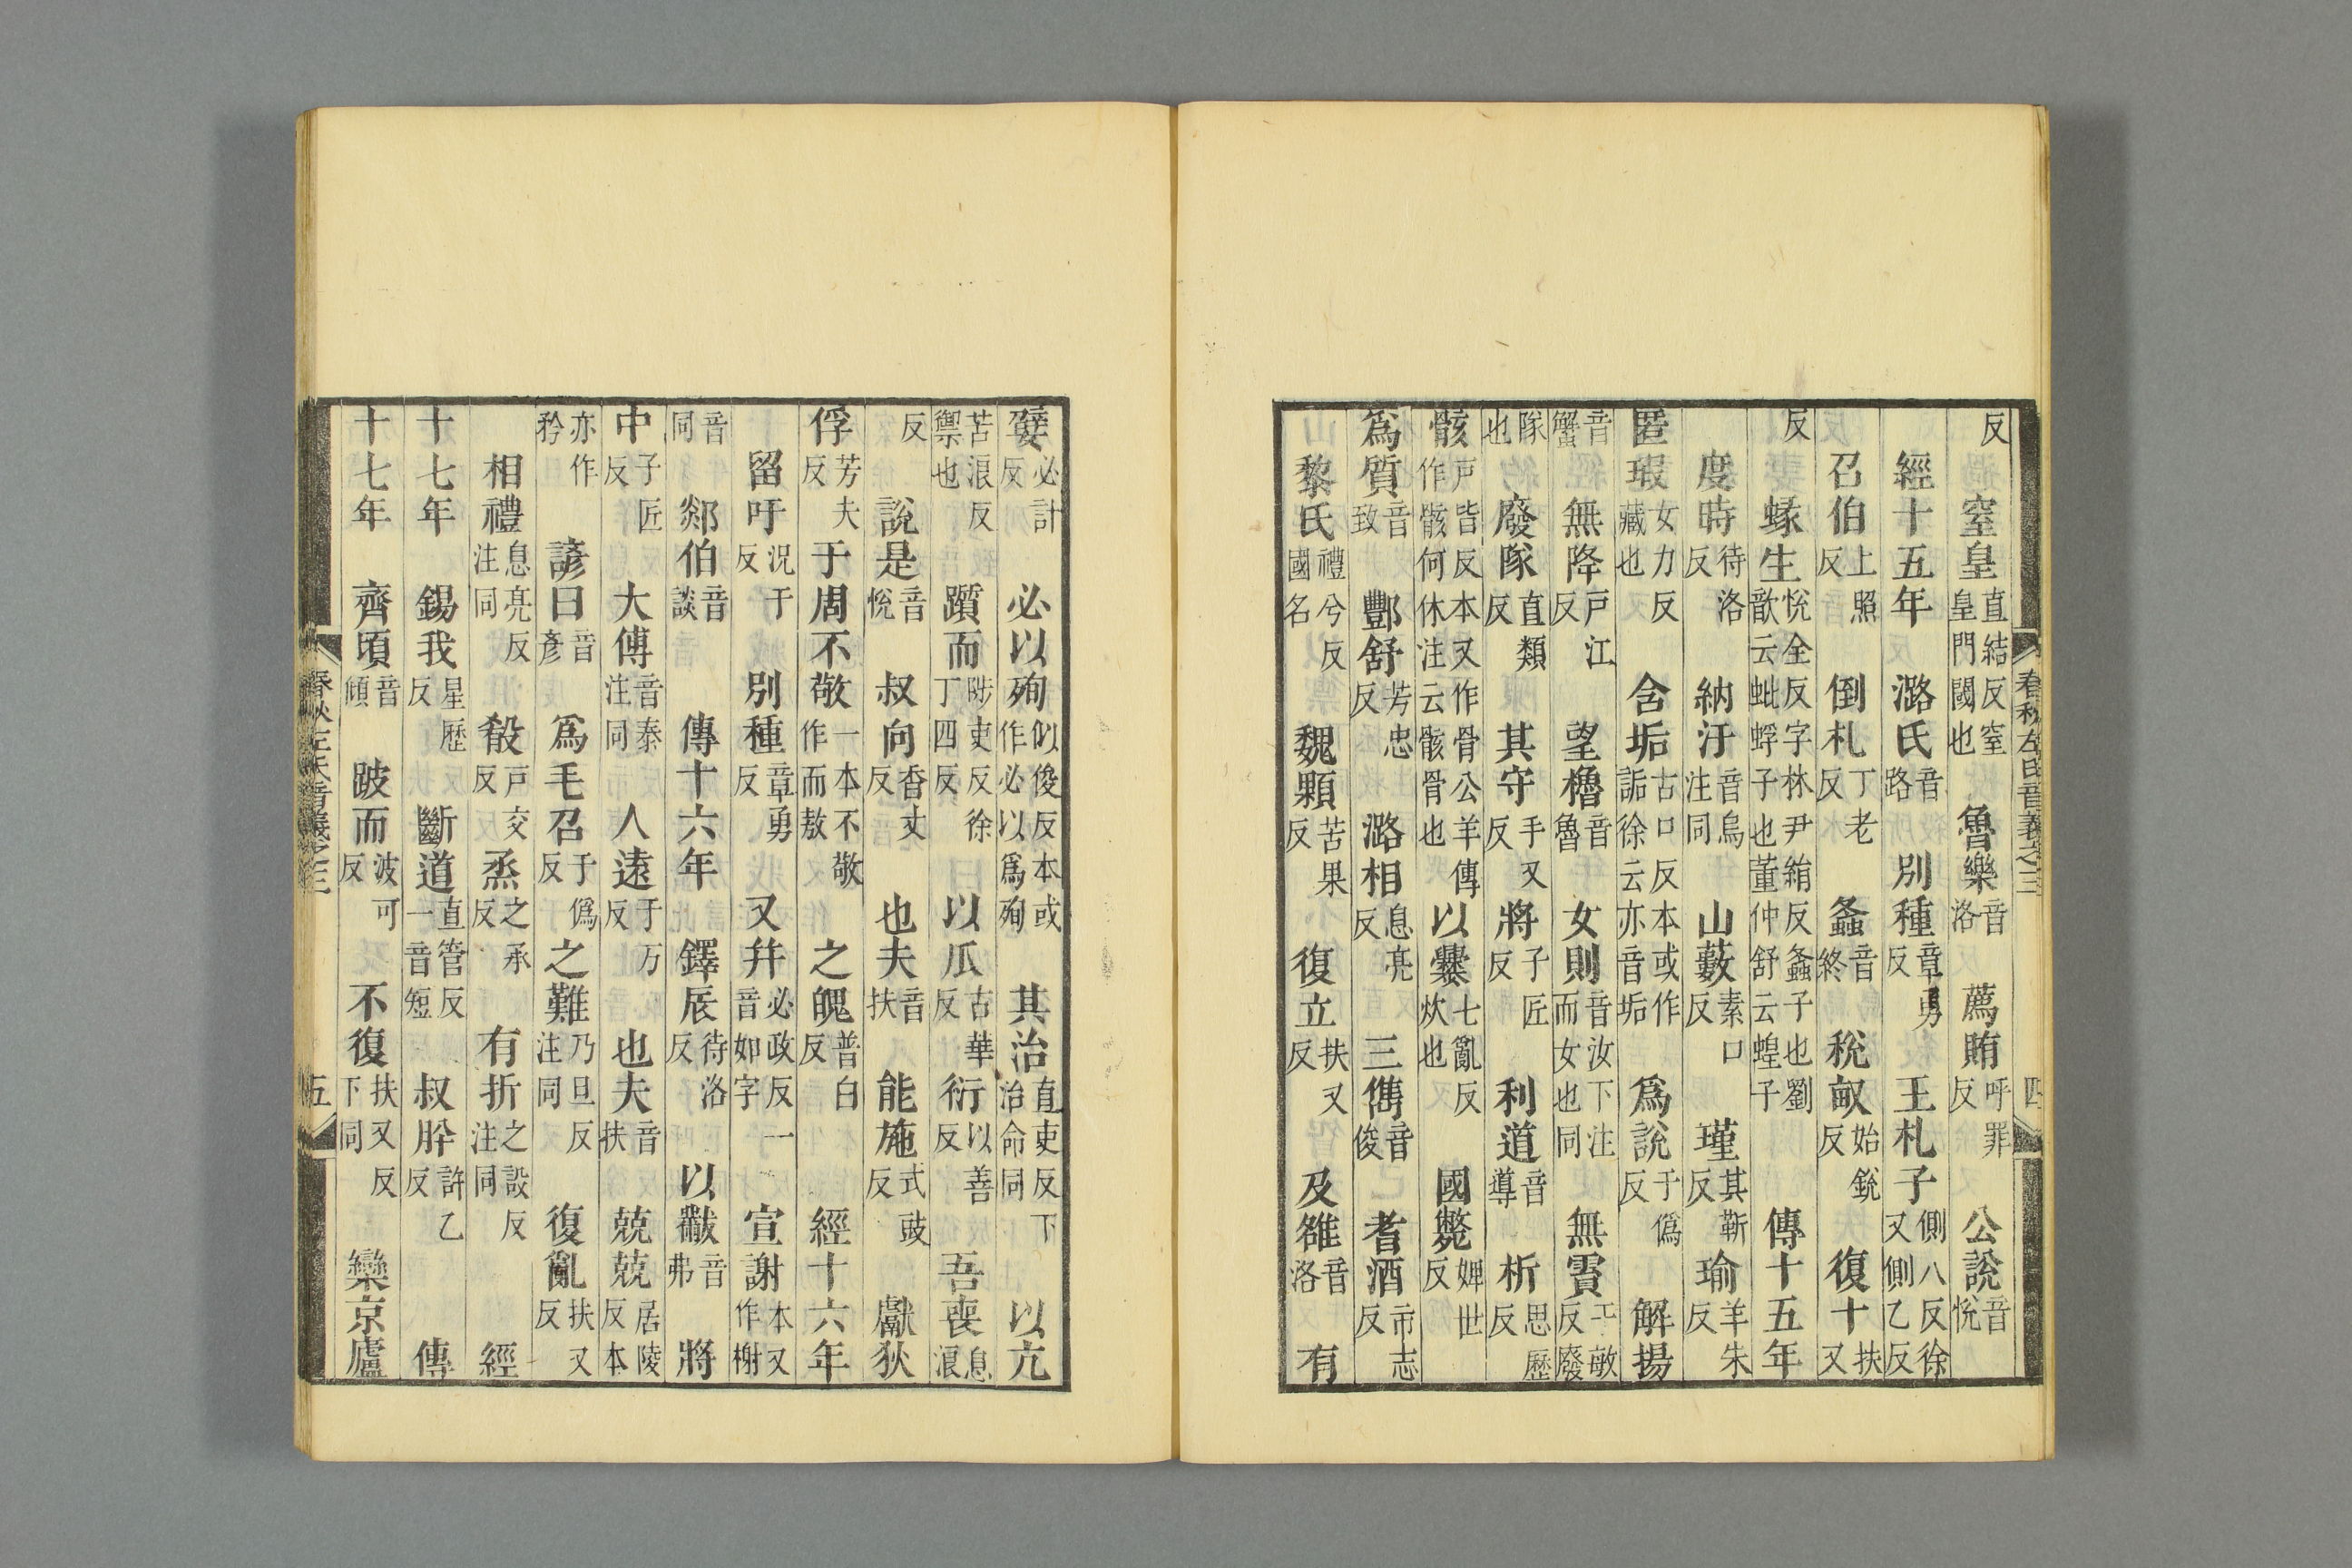 春秋左氏音義之三　四
反　窒皇直結反窒皇門闕也　魯樂音洛　薦賄呼罪反　公說音悅
經十五年　潞氏音路　別種章勇反　王札子側八反徐又側乙反
召伯上照反　倒札丁老反　螽音終　稅畝始銳反　復十扶又
反　蝝生悅全反字林尹絹反螽子也劉歆云蚍蜉子也董仲舒云蝗子　傳十五年
度時待洛反　納汙音烏注同　山藪素口反　瑾其靳反　瑜羊朱反
匿瑕女力反藏也　含垢古口反本或作詬徐云亦音垢　爲說于僞反　解揚
音蟹　無降戶江反　望櫓音魯　女則音汝下注而女也同　無霣于敏反廢
隊也　廢隊直類反　其守手又反　將子匠反　利道音導　析思歷反
骸戶皆反本又作骨公羊傳作骸何休注云骸骨也　以爨七亂反炊也　國斃婢世反
爲質音致　酆舒芳忠反　潞相息亮反　三儁音俊　耆酒市志反
黎氏禮兮反國名　魏顆苦果反　復立扶又反　及雒音洛　有
嬖必計反　必以殉似俊反本或作必以爲殉　其治直吏反下治命同　以亢
苦浪反禦也　躓而陟吏反徐丁四反　以瓜古華反　衍以善反　吾喪息浪
反　說是音悅　叔向香丈反　也夫音扶　能施式豉反　獻狄
俘芳夫反　于周不敬一本不敬作而敖　之魄普白反　經十六年
留吁況于反　別種章勇反　又幷必政反一音如字　宣謝本又作榭
音同　郯伯音談　傳十六年　鐸辰待洛反　以黻音弗　將
中子匠反　大傅音泰注同　人遠于万反　也夫音扶　兢兢居陵反本
亦作矜　諺曰音彥　爲毛召于僞反　之難乃旦反注同　復亂扶又反
相禮息亮反注同　殽戶交反　烝之承反　有折之設反注同　經
十七年　錫我星歷反　斷道直管反一音短　叔肸許乙反　傳
十七年　齊頃音傾　跛而波可反　不復扶又反下同　欒京廬
春秋左氏音義之三　五